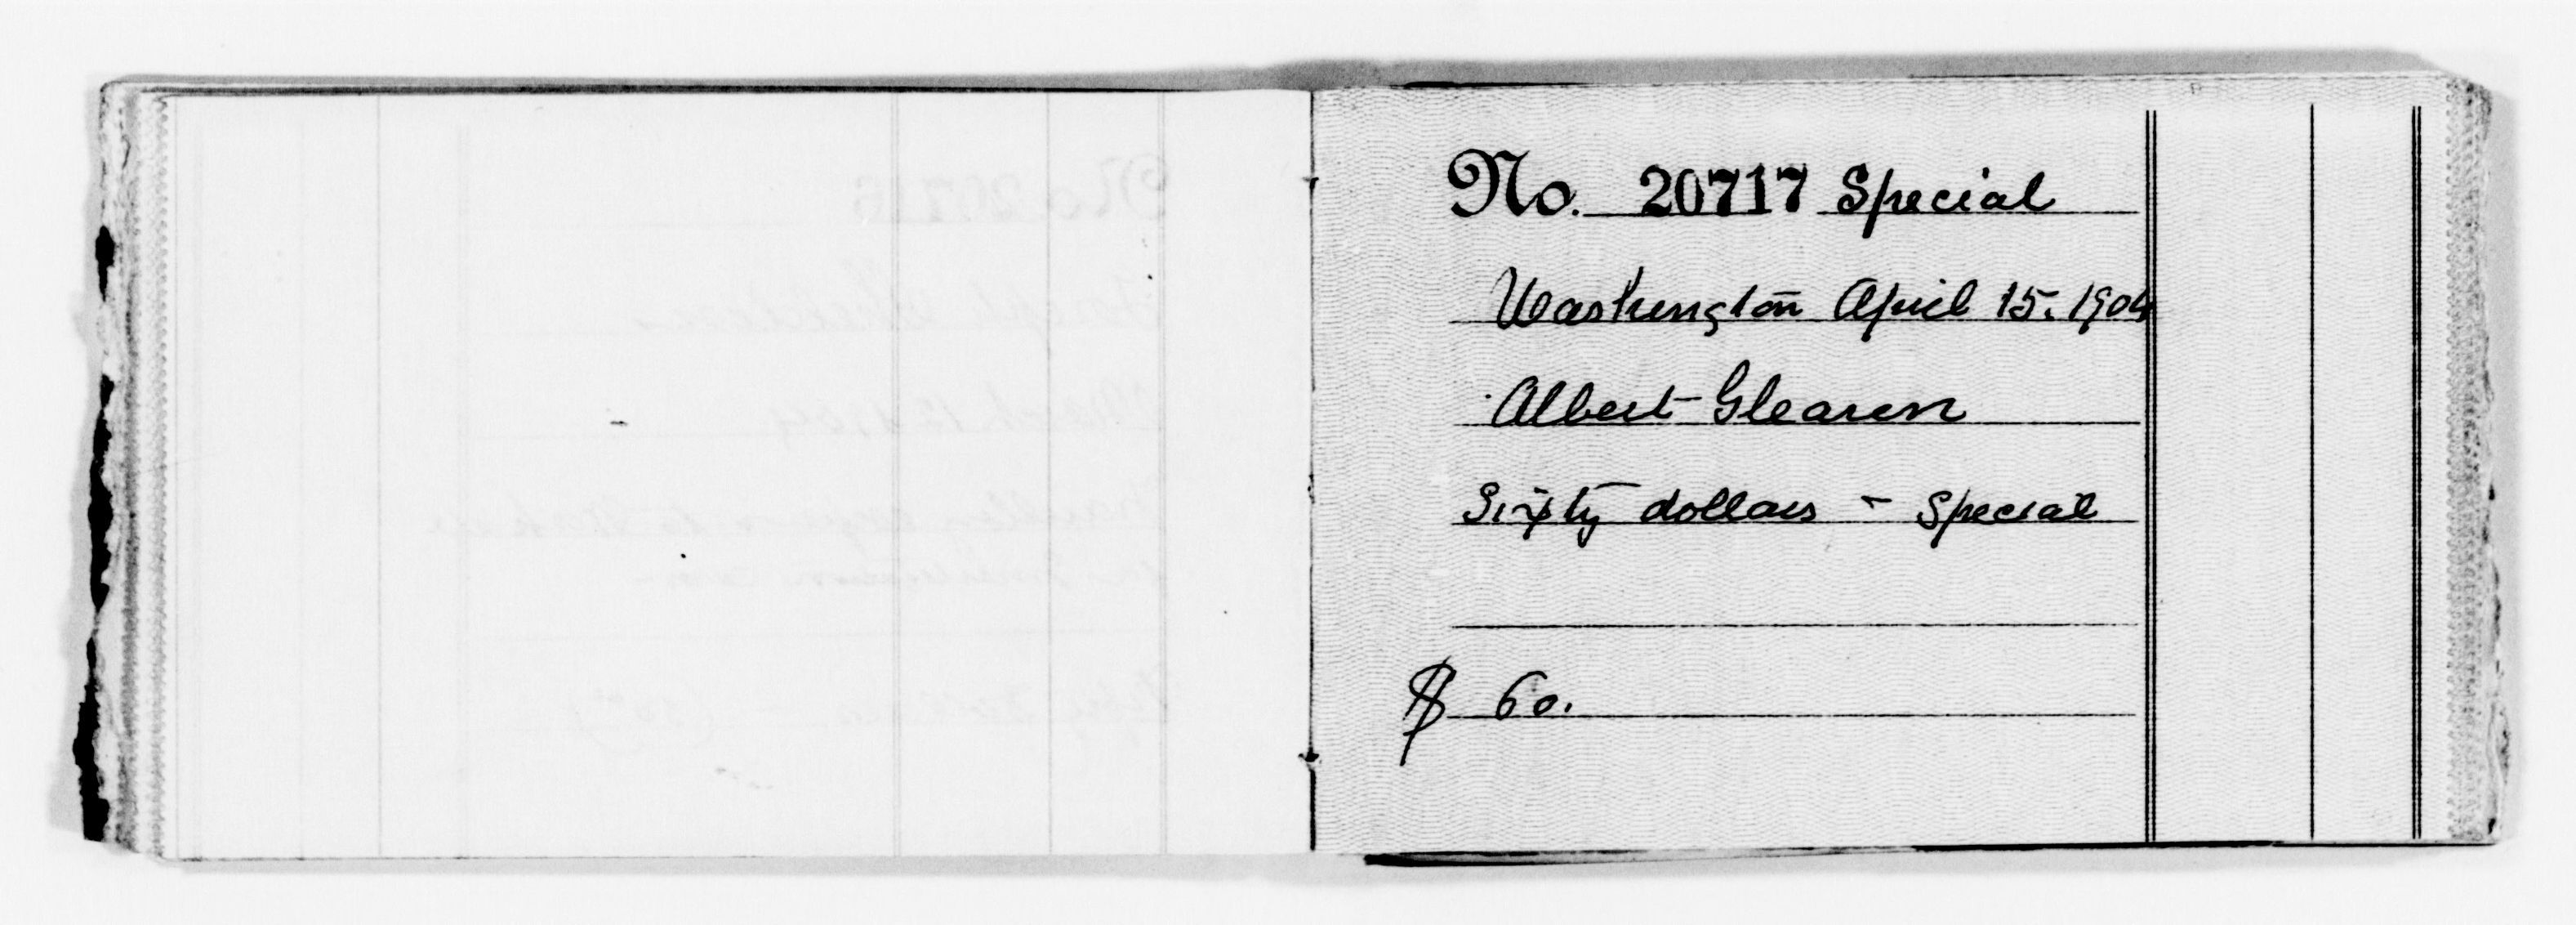 No. 20717 Special
Washington April 15. 1904
Albert Glearen
Sixty dollars - Special
$ 60.